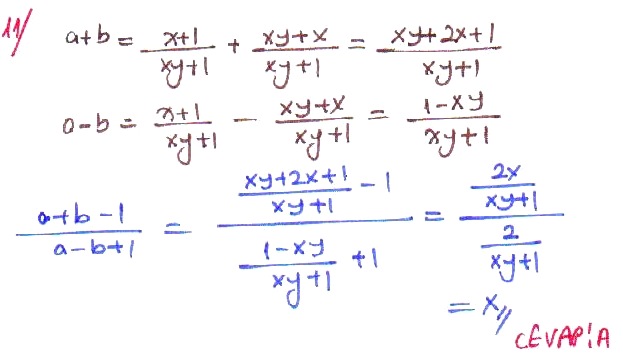 11/ a+b = \frac{x+1}{xy+1} + \frac{xy+x}{xy+1} = \frac{xy+2x+1}{xy+1}
a-b = \frac{x+1}{xy+1} - \frac{xy+x}{xy+1} = \frac{1-xy}{xy+1}
\frac{a+b-1}{a-b+1} = \frac{\frac{xy+2x+1}{xy+1} - 1}{\frac{1-xy}{xy+1} + 1} = \frac{\frac{2x}{xy+1}}{\frac{2}{xy+1}}
= x//
CEVAP:A